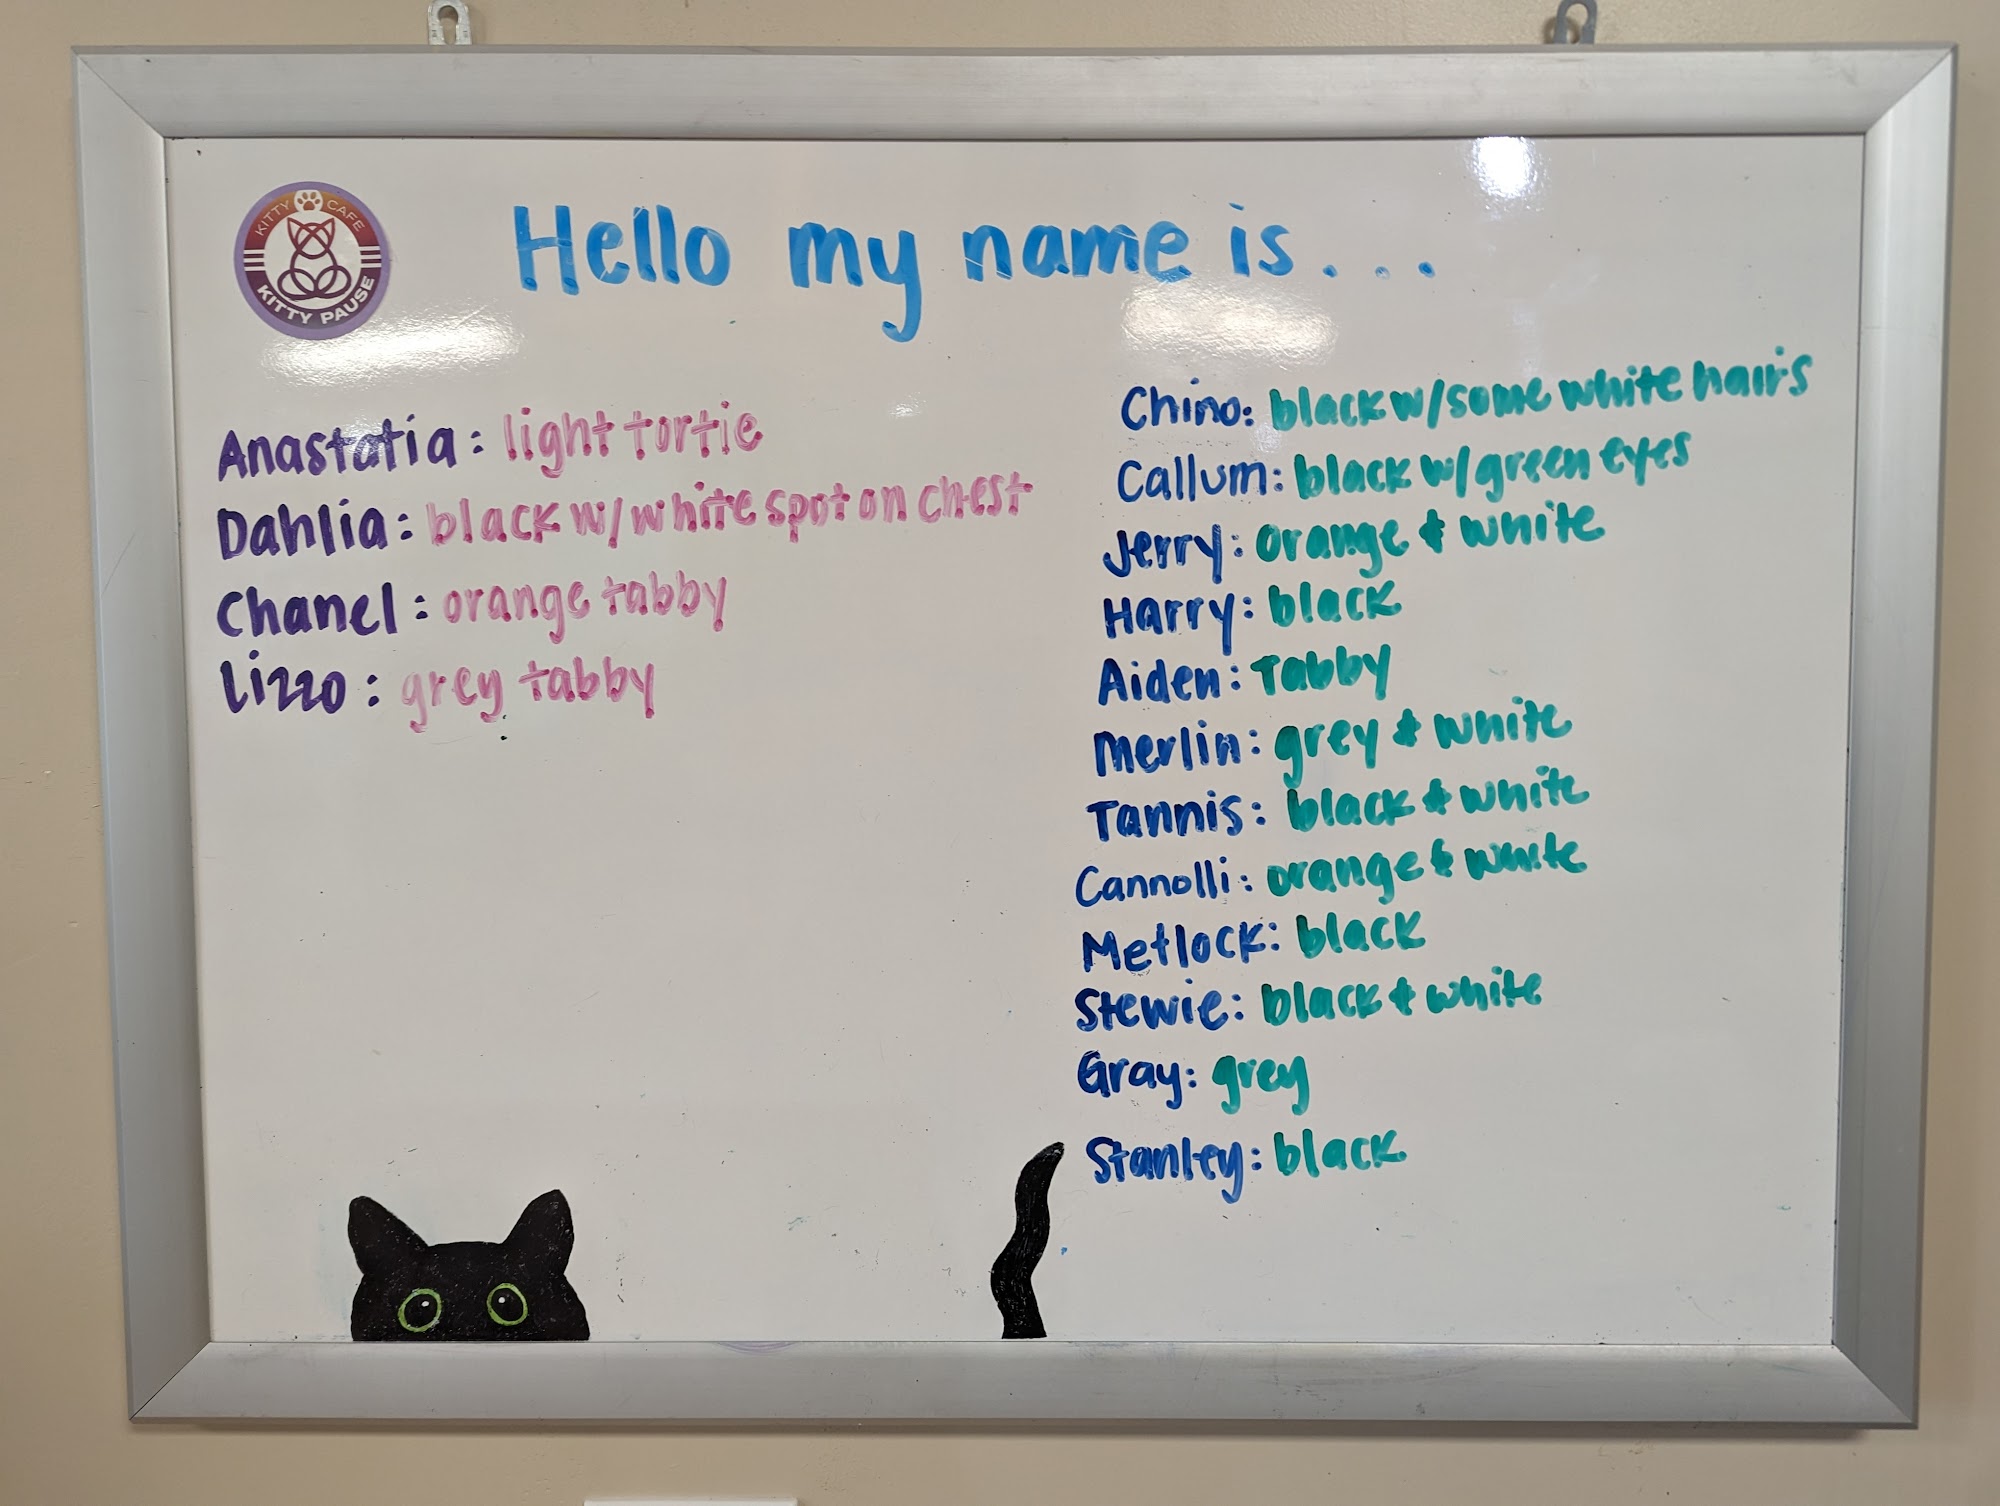 KITTY CAFE
KITTY PAUSE
Hello my name is...
Anastatia: light tortie
Dahlia: black w/white spot on chest
Chanel: orange tabby
Lizzo: grey tabby
Chino: black w/some white hairs
Callum: black w/green eyes
Jerry: orange & white
Harry: black
Aiden: Tabby
Merlin: grey & white
Tannis: black & white
Cannolli: orange & white
Metlock: black
Stewie: black & white
Gray: grey
Stanley: black